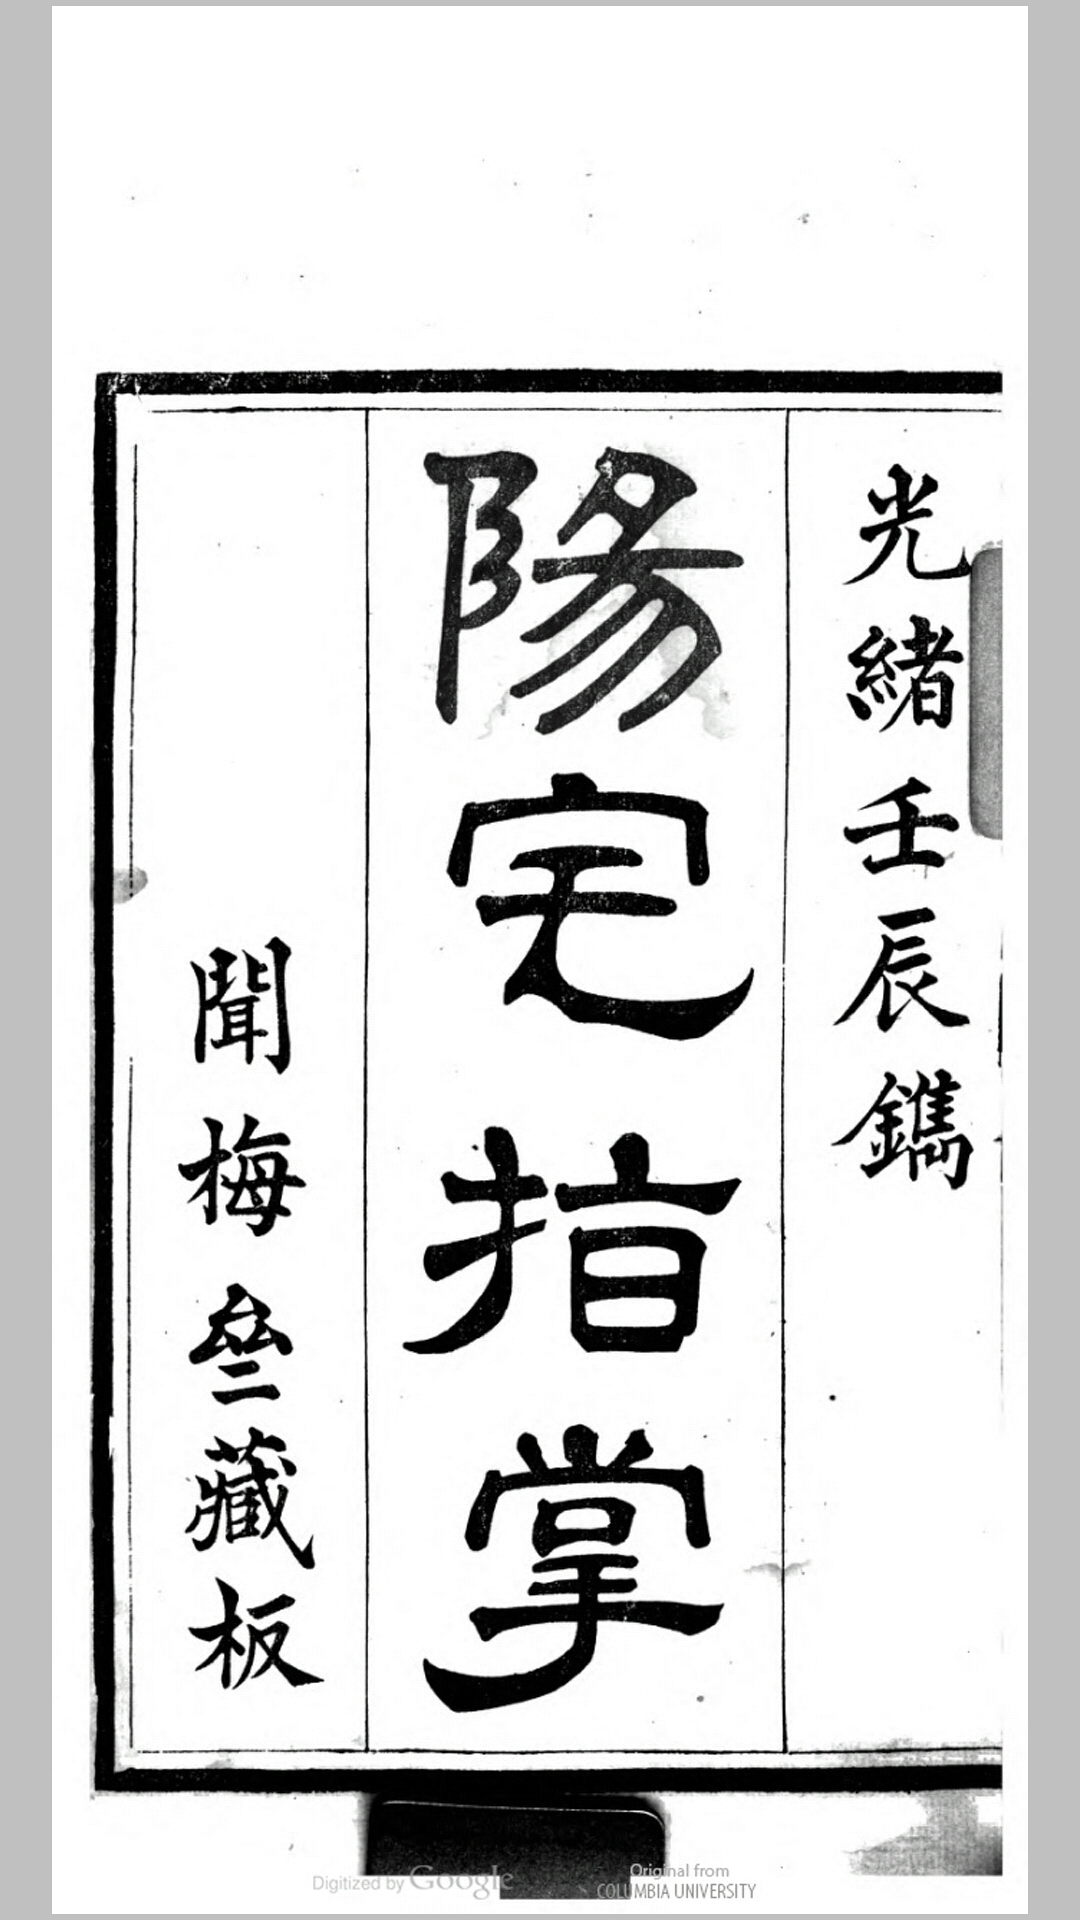 光緒壬辰鐫
陽宅指掌
聞梅叄藏板
Digitized by Google
Original from
COLUMBIA UNIVERSITY